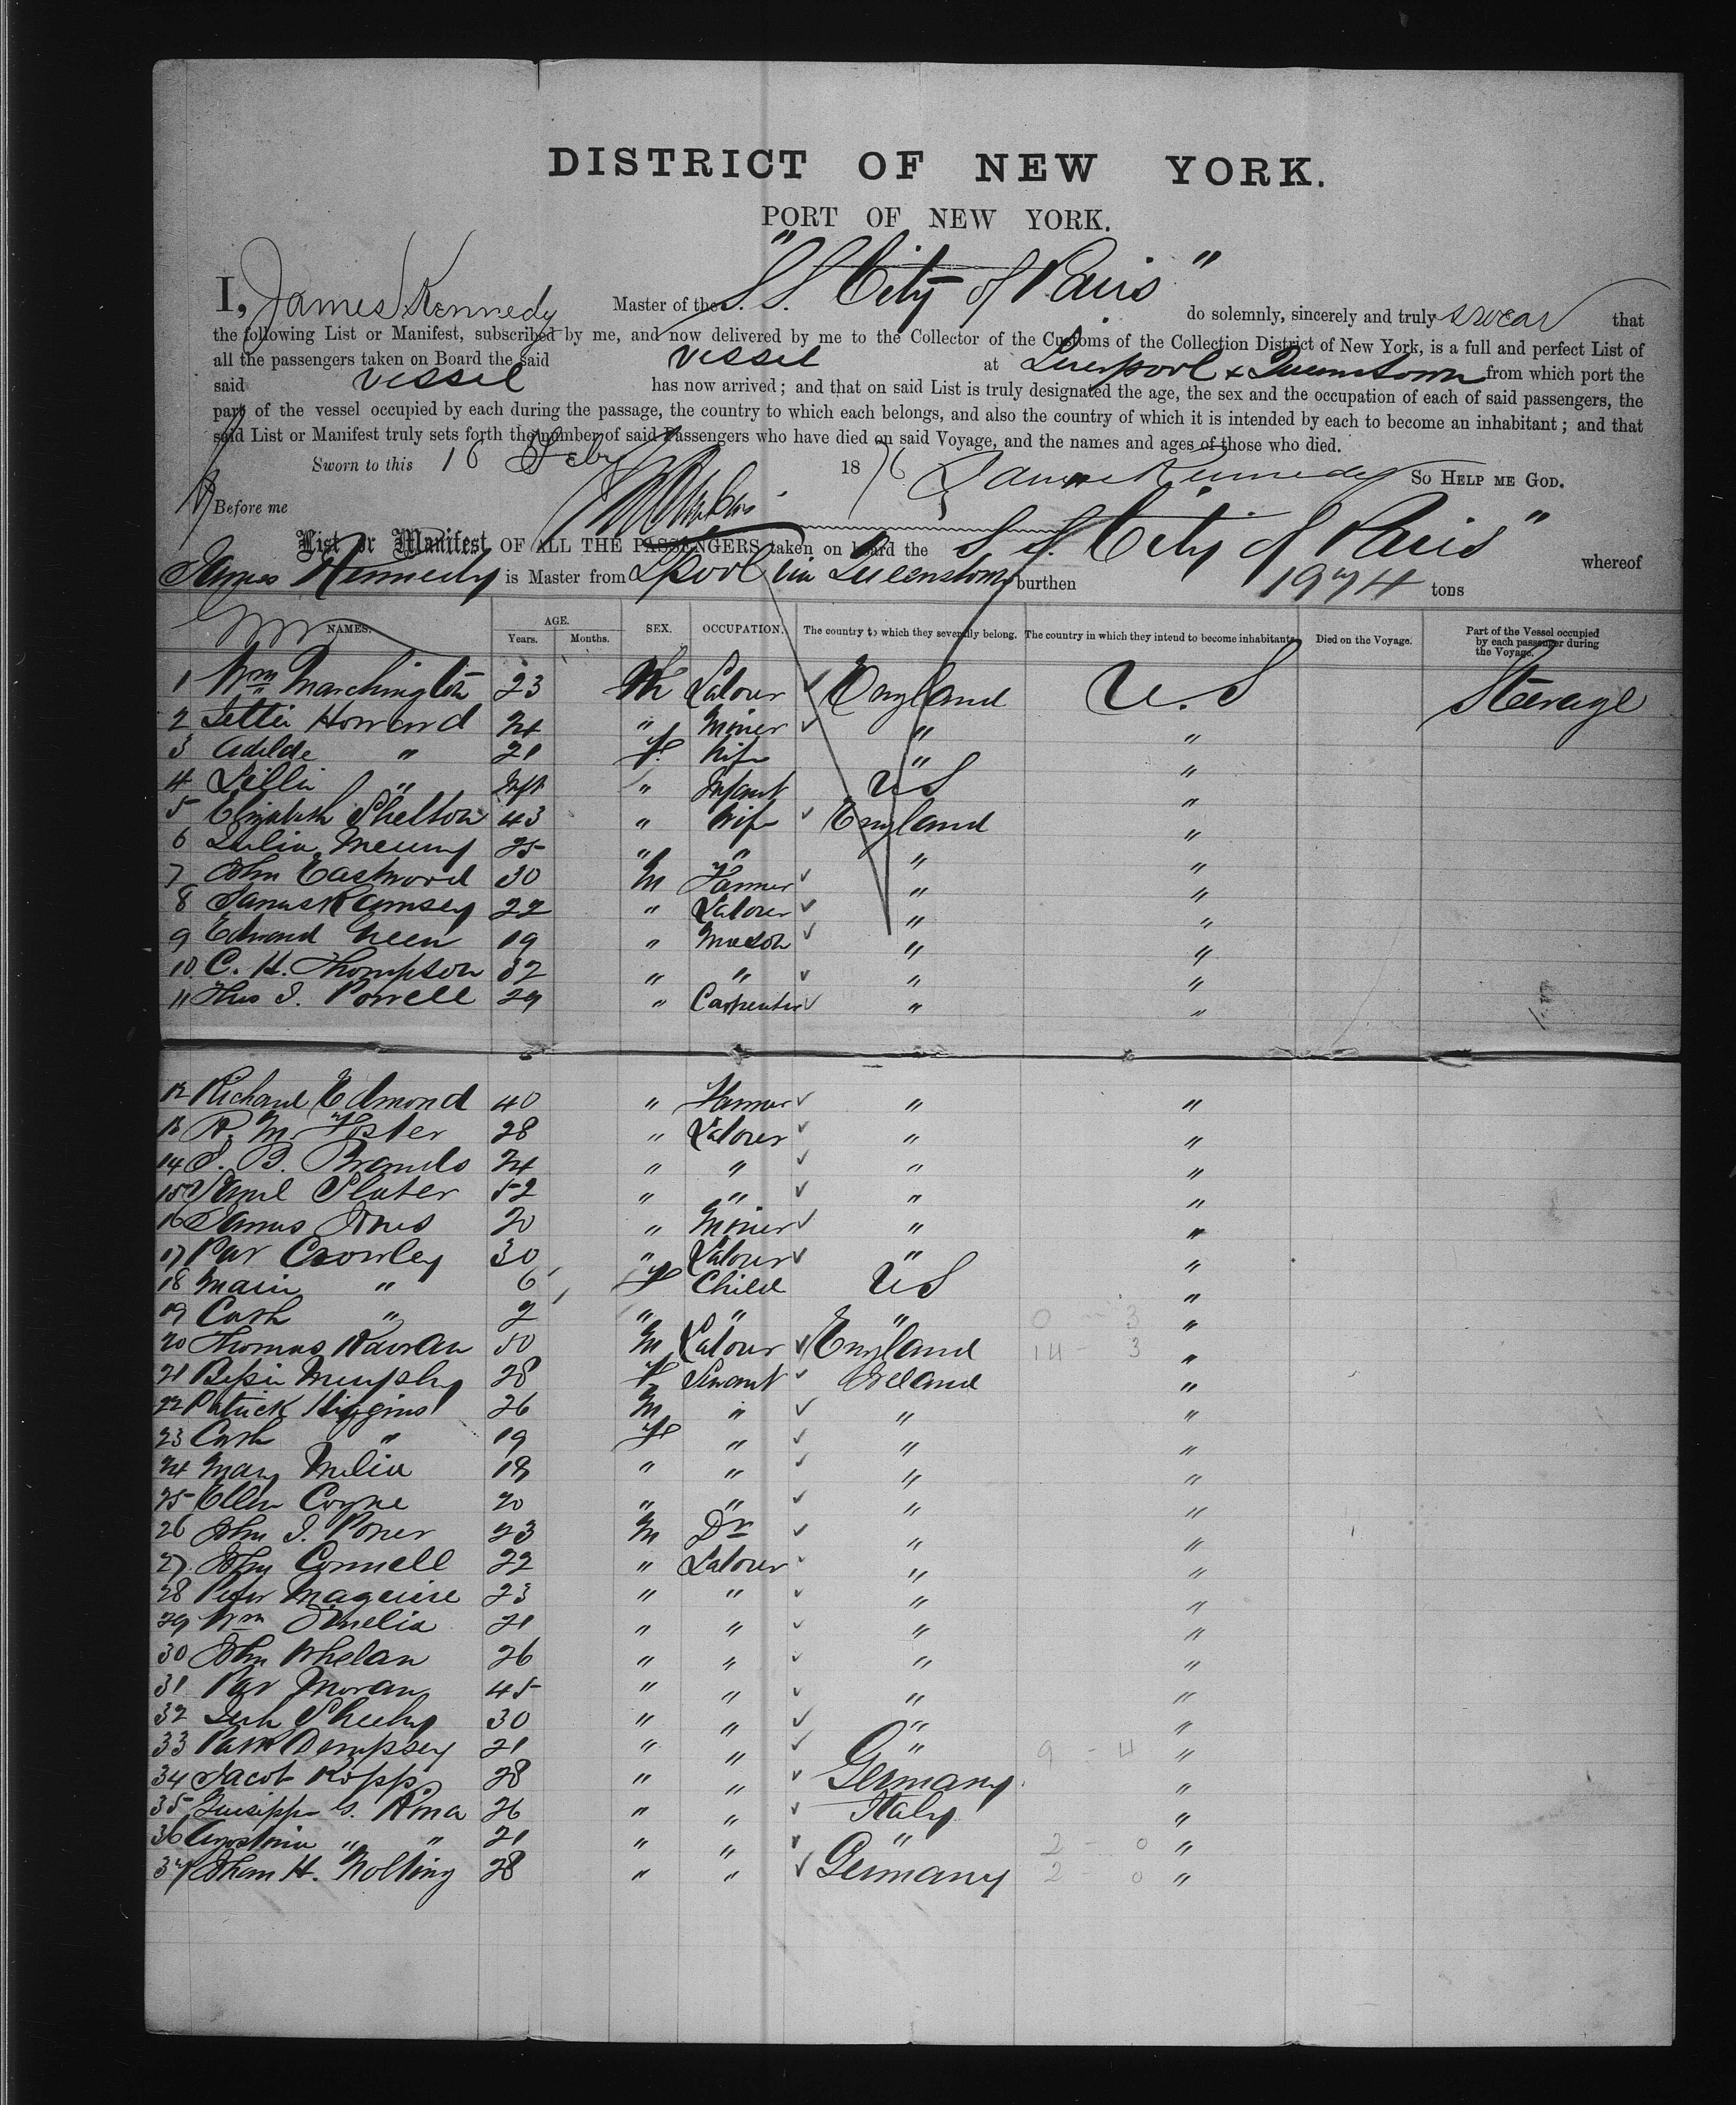 DISTRICT OF NEW YORK.
PORT OF NEW YORK.
I, James Kennedy Master of the "S.S. City of Paris" do solemnly, sincerely and truly swear that
the following List or Manifest, subscribed by me, and now delivered by me to the Collector of the Customs of the Collection District of New York, is a full and perfect List of
all the passengers taken on Board the said vessel at Liverpool & Queenstown from which port the
said vessel has now arrived; and that on said List is truly designated the age, the sex and the occupation of each of said passengers, the
part of the vessel occupied by each during the passage, the country to which each belongs, and also the country of which it is intended by each to become an inhabitant; and that
said List or Manifest truly sets forth the number of said Passengers who have died on said Voyage, and the names and ages of those who died.
Sworn to this 16 Feby 1876 James Kennedy SO HELP ME GOD.
Before me
List or Manifest OF ALL THE PASSENGERS taken on board the S.S. City of Paris" whereof
James Kennedy is Master from Lpool via Queenstown burthen 1974 tons
NAMES. AGE. Years. Months. SEX. OCCUPATION. The country to which they severally belong. The country in which they intend to become inhabitants. Died on the Voyage. Part of the Vessel occupied by each passenger during the Voyage.
1 Wm Marchington 23 M Labour England U.S Steerage
2 Howard 24 " Miner " "
3 " 21 F. Wife " "
4 Lillie " Inft " Infant US "
5 Elizabeth Shelton 43 " Wife England "
6 Julia 25 " " " "
7 John Eastwood 30 M Farmer " "
8 James Ramsey 22 " Labour " "
9 Edward Green 19 " Mason " "
10 C. H. Thompson 32 " " " "
11 Thos J. Powell 29 " Carpenter " "
12 Richard Edmond 40 " Farmer " "
13 R. M. Foster 28 " Labour " "
14 J. B. Brands 24 " " " "
15 Saml Slater 52 " " " "
16 James Jones 20 " Miner " "
17 Pat Crowley 30 " Labour " "
18 " 6 F Child US "
19 Cath " 2 " " " "
20 Thomas 50 M Labour England "
21 Bessie Murphy 28 F Servant Ireland "
22 Patrick Higgins 26 M " " "
23 Cath " 19 F " " "
24 Mary Melia 18 " " " "
25 Ellen Coyne 20 " " " "
26 John J. Power 23 M Dr " "
27 John Connell 22 " Labour " "
28 Peter Maguire 23 " " " "
29 Wm 21 " " " "
30 John Whelan 26 " " " "
31 Pat Moran 45 " " " "
32 Sheehy 30 " " " "
33 Dempsey 21 " " " "
34 Jacob Kopp 28 " " Germany "
35 26 " " Italy "
36 " " 21 " " " "
37 H. Nolting 28 " " Germany "